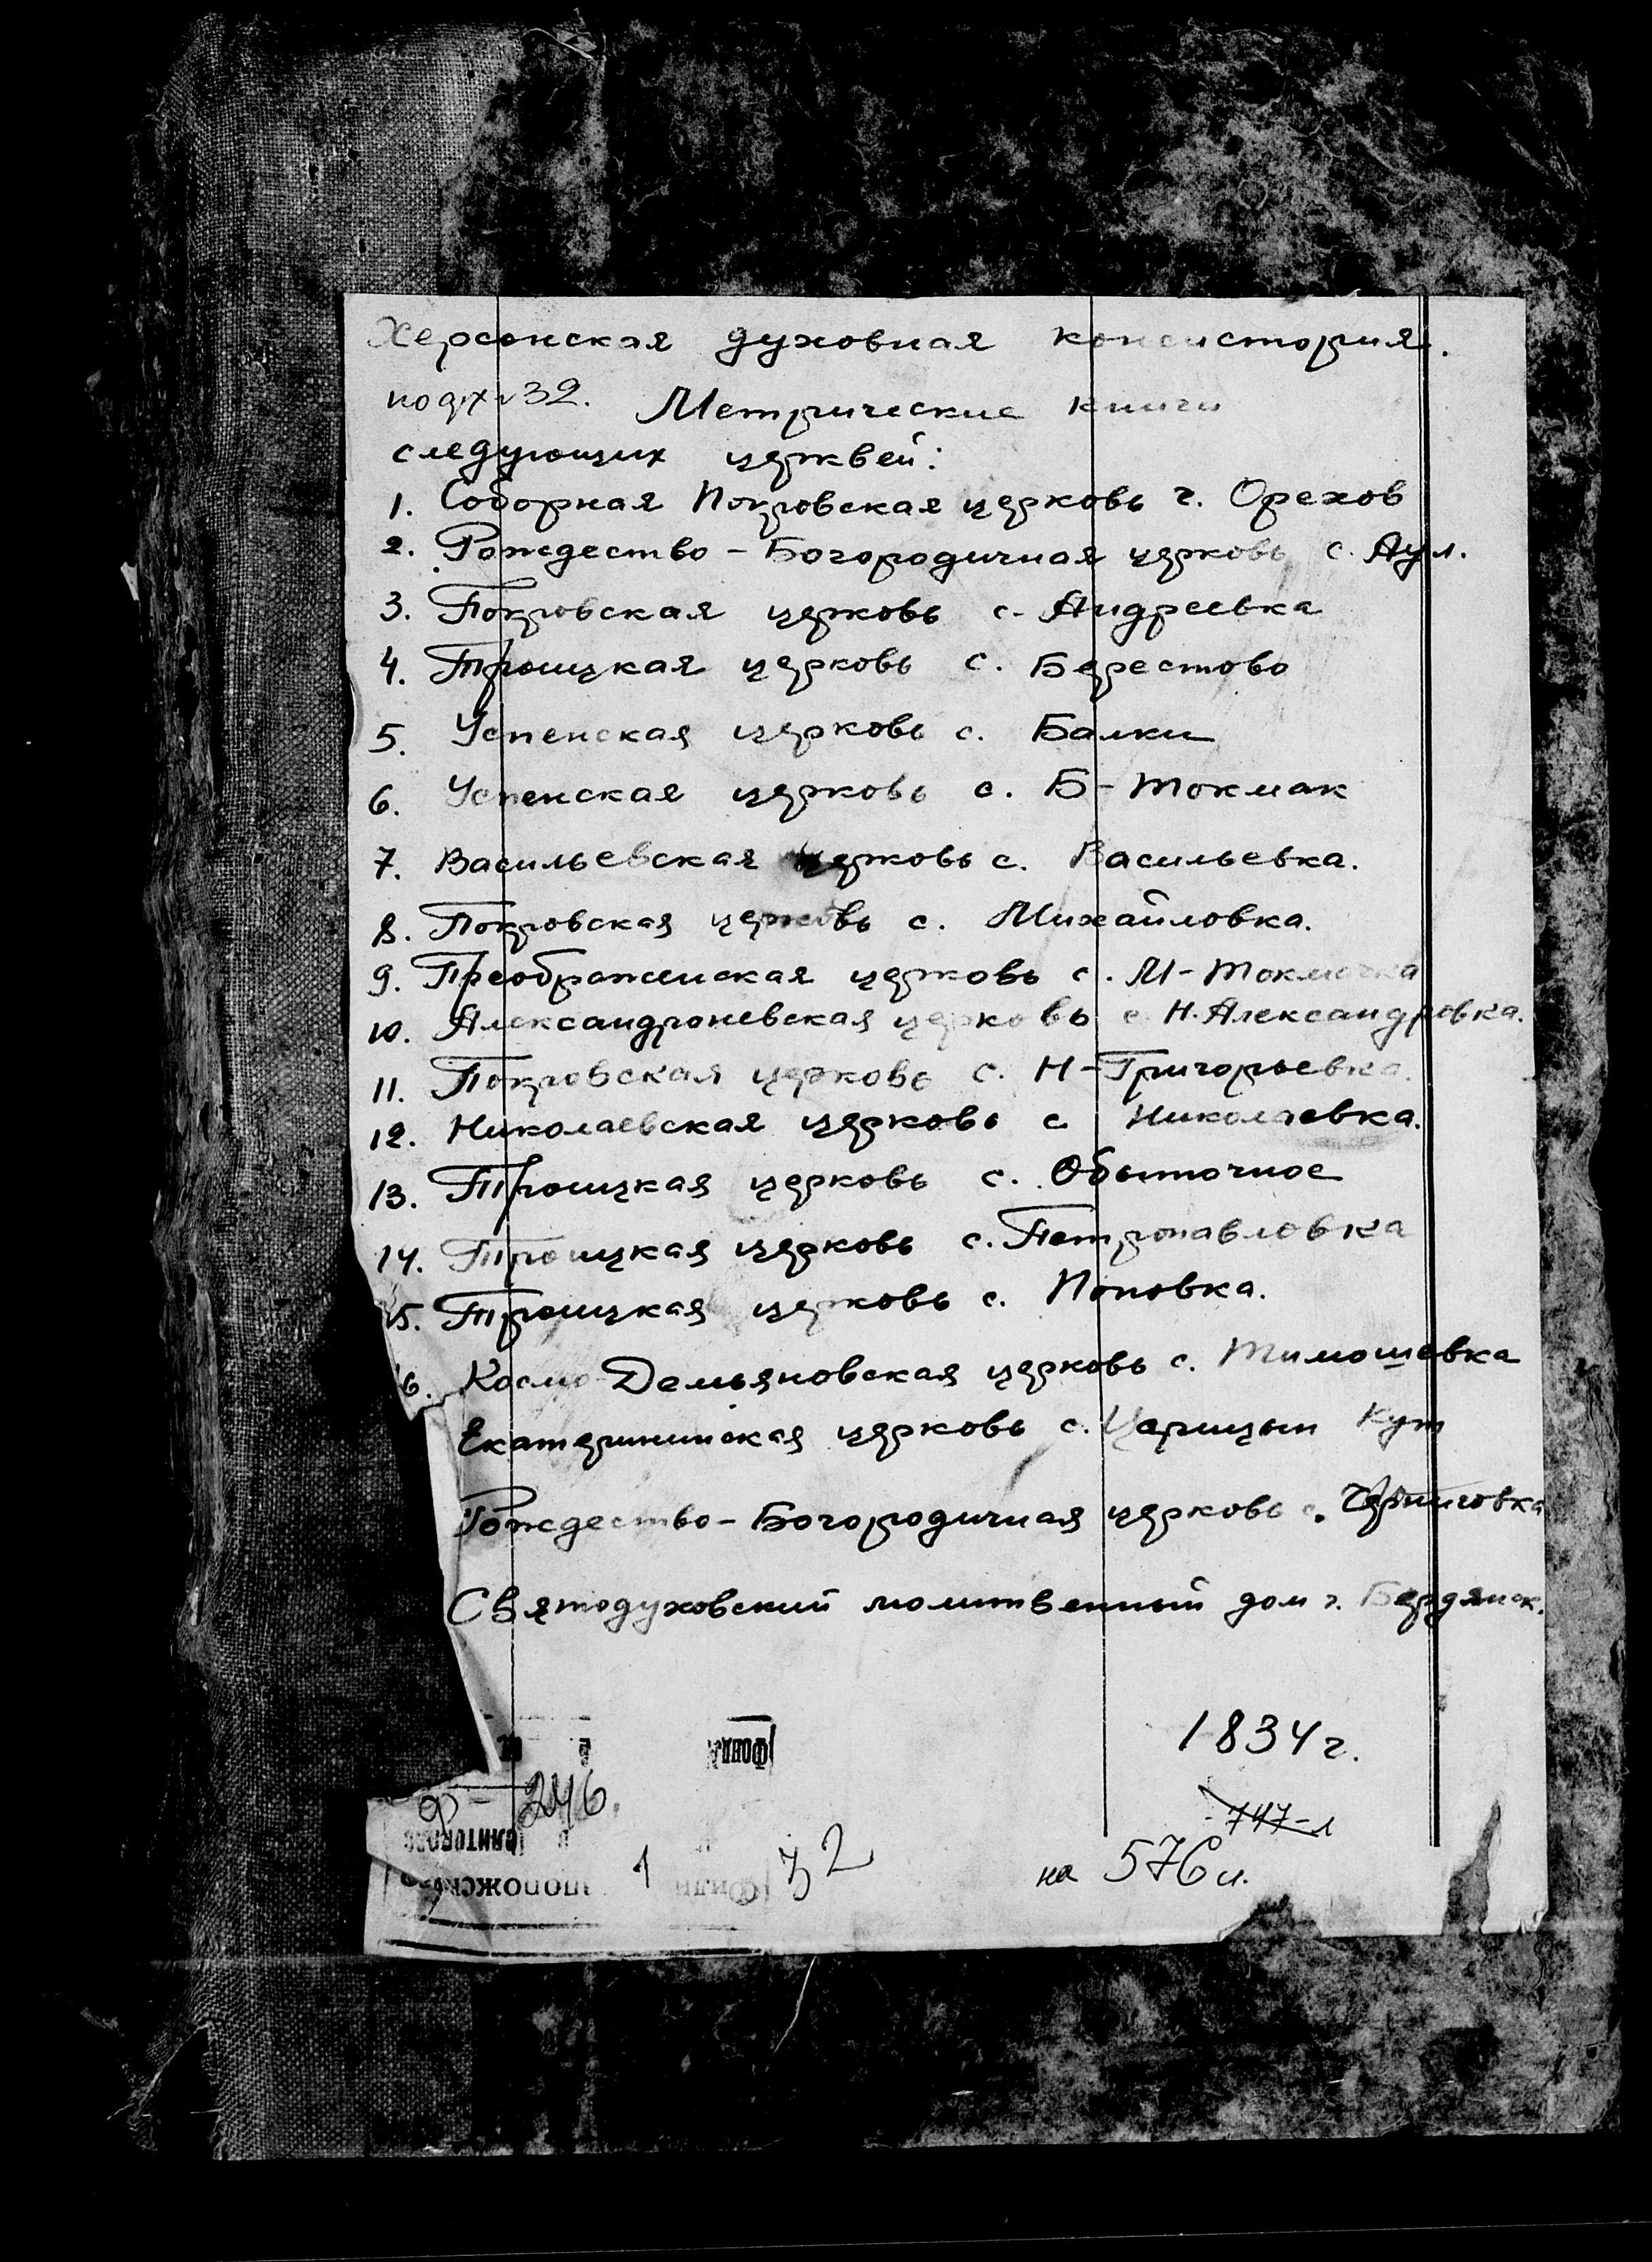 Херсонская духовная консистория.
под № 32. Метрические книги
следующих церквей:
1. Соборная Покровская церковь г. Орехов
2. Рождество-Богородичная церковь с. Аул.
3. Покровская церковь с. Андреевка
4. Троицкая церковь с. Берестово
5. Успенская церковь с. Балки
6. Успенская церковь с. Б-Токмак
7. Васильевская церковь с. Васильевка.
8. Покровская церковь с. Михайловка.
9. Преображенская церковь с. М-Токмачка
10. Александроневская церковь с. Н. Александровка.
11. Покровская церковь с. Н-Григорьевка.
12. Николаевская церковь с Николаевка.
13. Троицкая церковь с. Обыточное
14. Троицкая церковь с. Петропавловка
15. Троицкая церковь с. Поповка.
6. Космо Демьяновская церковь с. Тимошевка
Екатерининская церковь с. Царицын Кут
Рождество-Богородичная церковь с. Черниговка
Святодуховский молитвенный дом г. Бердянск.
1834 г.
Фонд
Ф-246
747-л
1 32 на 576 л.